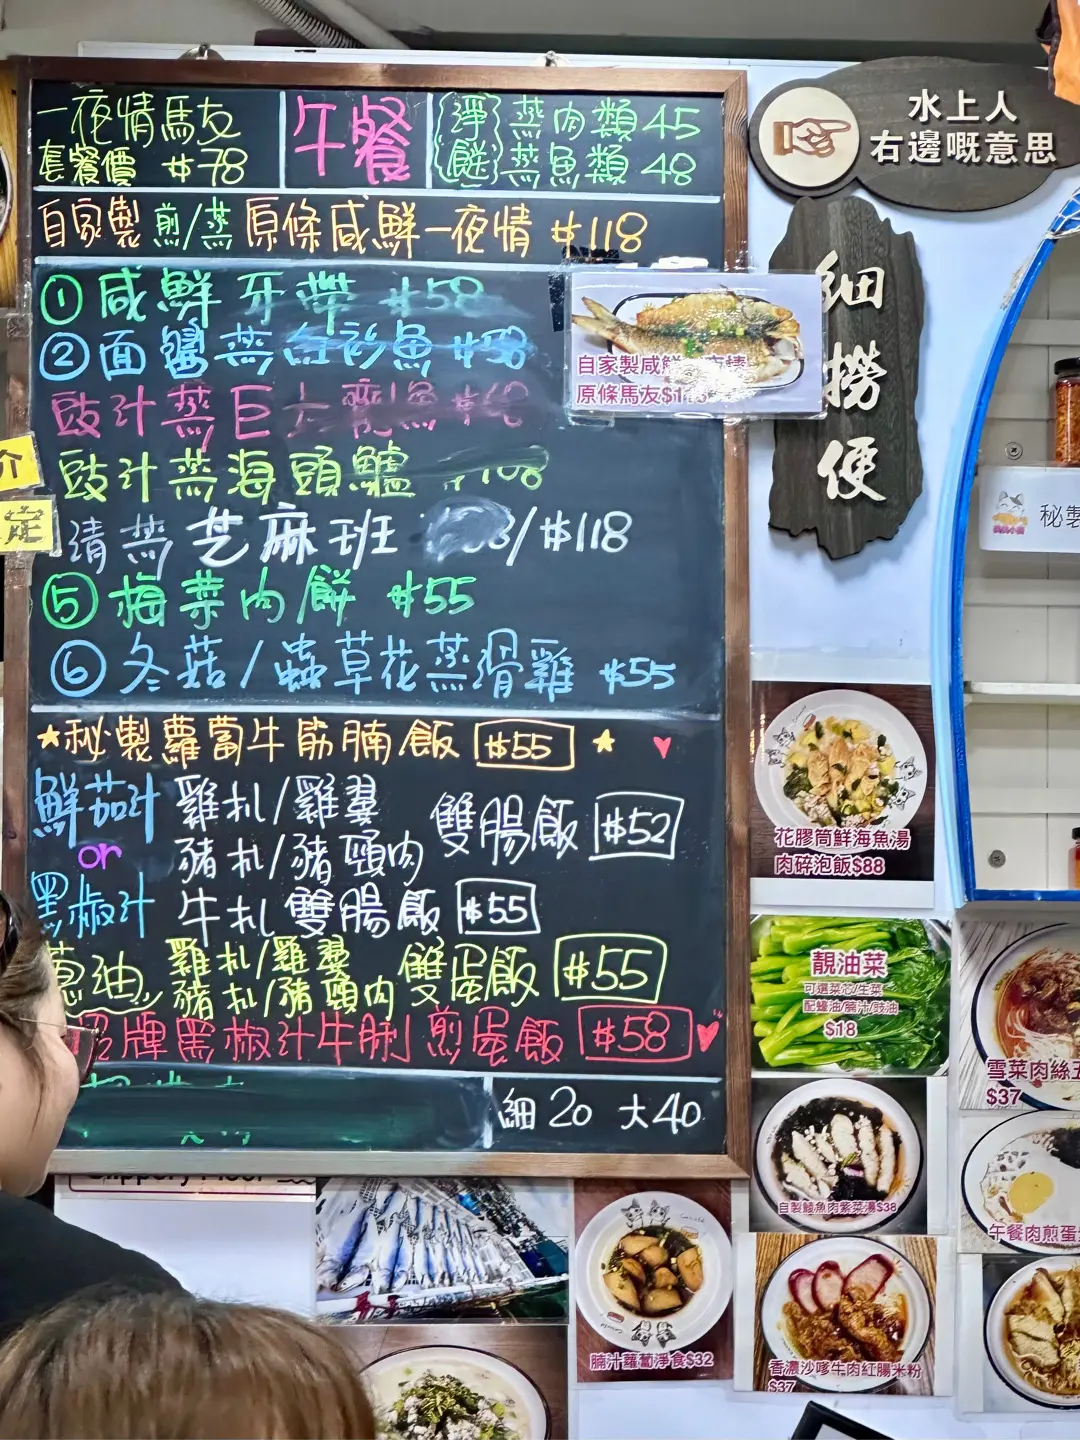 一夜情馬友
套餐價 $78
午餐
淨餸
蒸肉類45
蒸魚類48
自家製煎/蒸原條咸鮮一夜情 $118
①咸鮮牙帶 $58
②面醬蒸紅衫魚 $58
豉汁蒸巨
豉汁蒸海頭鱸
清蒸芝麻班 /$118
⑤梅菜肉餅 $55
⑥冬菇/蟲草花蒸滑雞 $55
★秘製蘿蔔牛筋腩飯 $55 ★
鮮茄汁
or
黑椒汁
雞扒/雞翼
豬扒/豬頸肉
雙腸飯 $52
牛扒雙腸飯 $55
蔥油
雞扒/雞翼
豬扒/豬頸肉
雙蛋飯 $55
招牌黑椒汁牛脷煎蛋飯 $58
細20 大40
自家製咸鮮
原條馬友$1
水上人
右邊嘅意思
細撈便
介
定
秘製
花膠筒鮮海魚湯
肉碎泡飯$88
靚油菜
可選菜芯/生菜
配蠔油/腩汁/豉油
$18
雪菜肉絲
$37
自製鯪魚肉紫菜湯$38
午餐肉煎蛋
香濃沙嗲牛肉紅腸米粉
$37
腩汁蘿蔔淨食$32
馬友
Slippery Floor